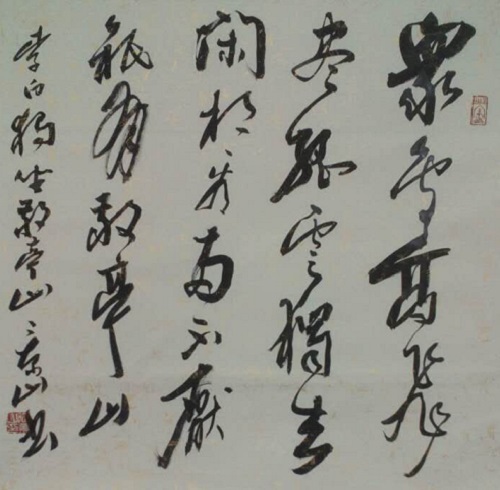 眾鳥高飛
盡孤雲獨去
閑相看兩不厭
祇有敬亭山
李白獨坐敬亭山 山書